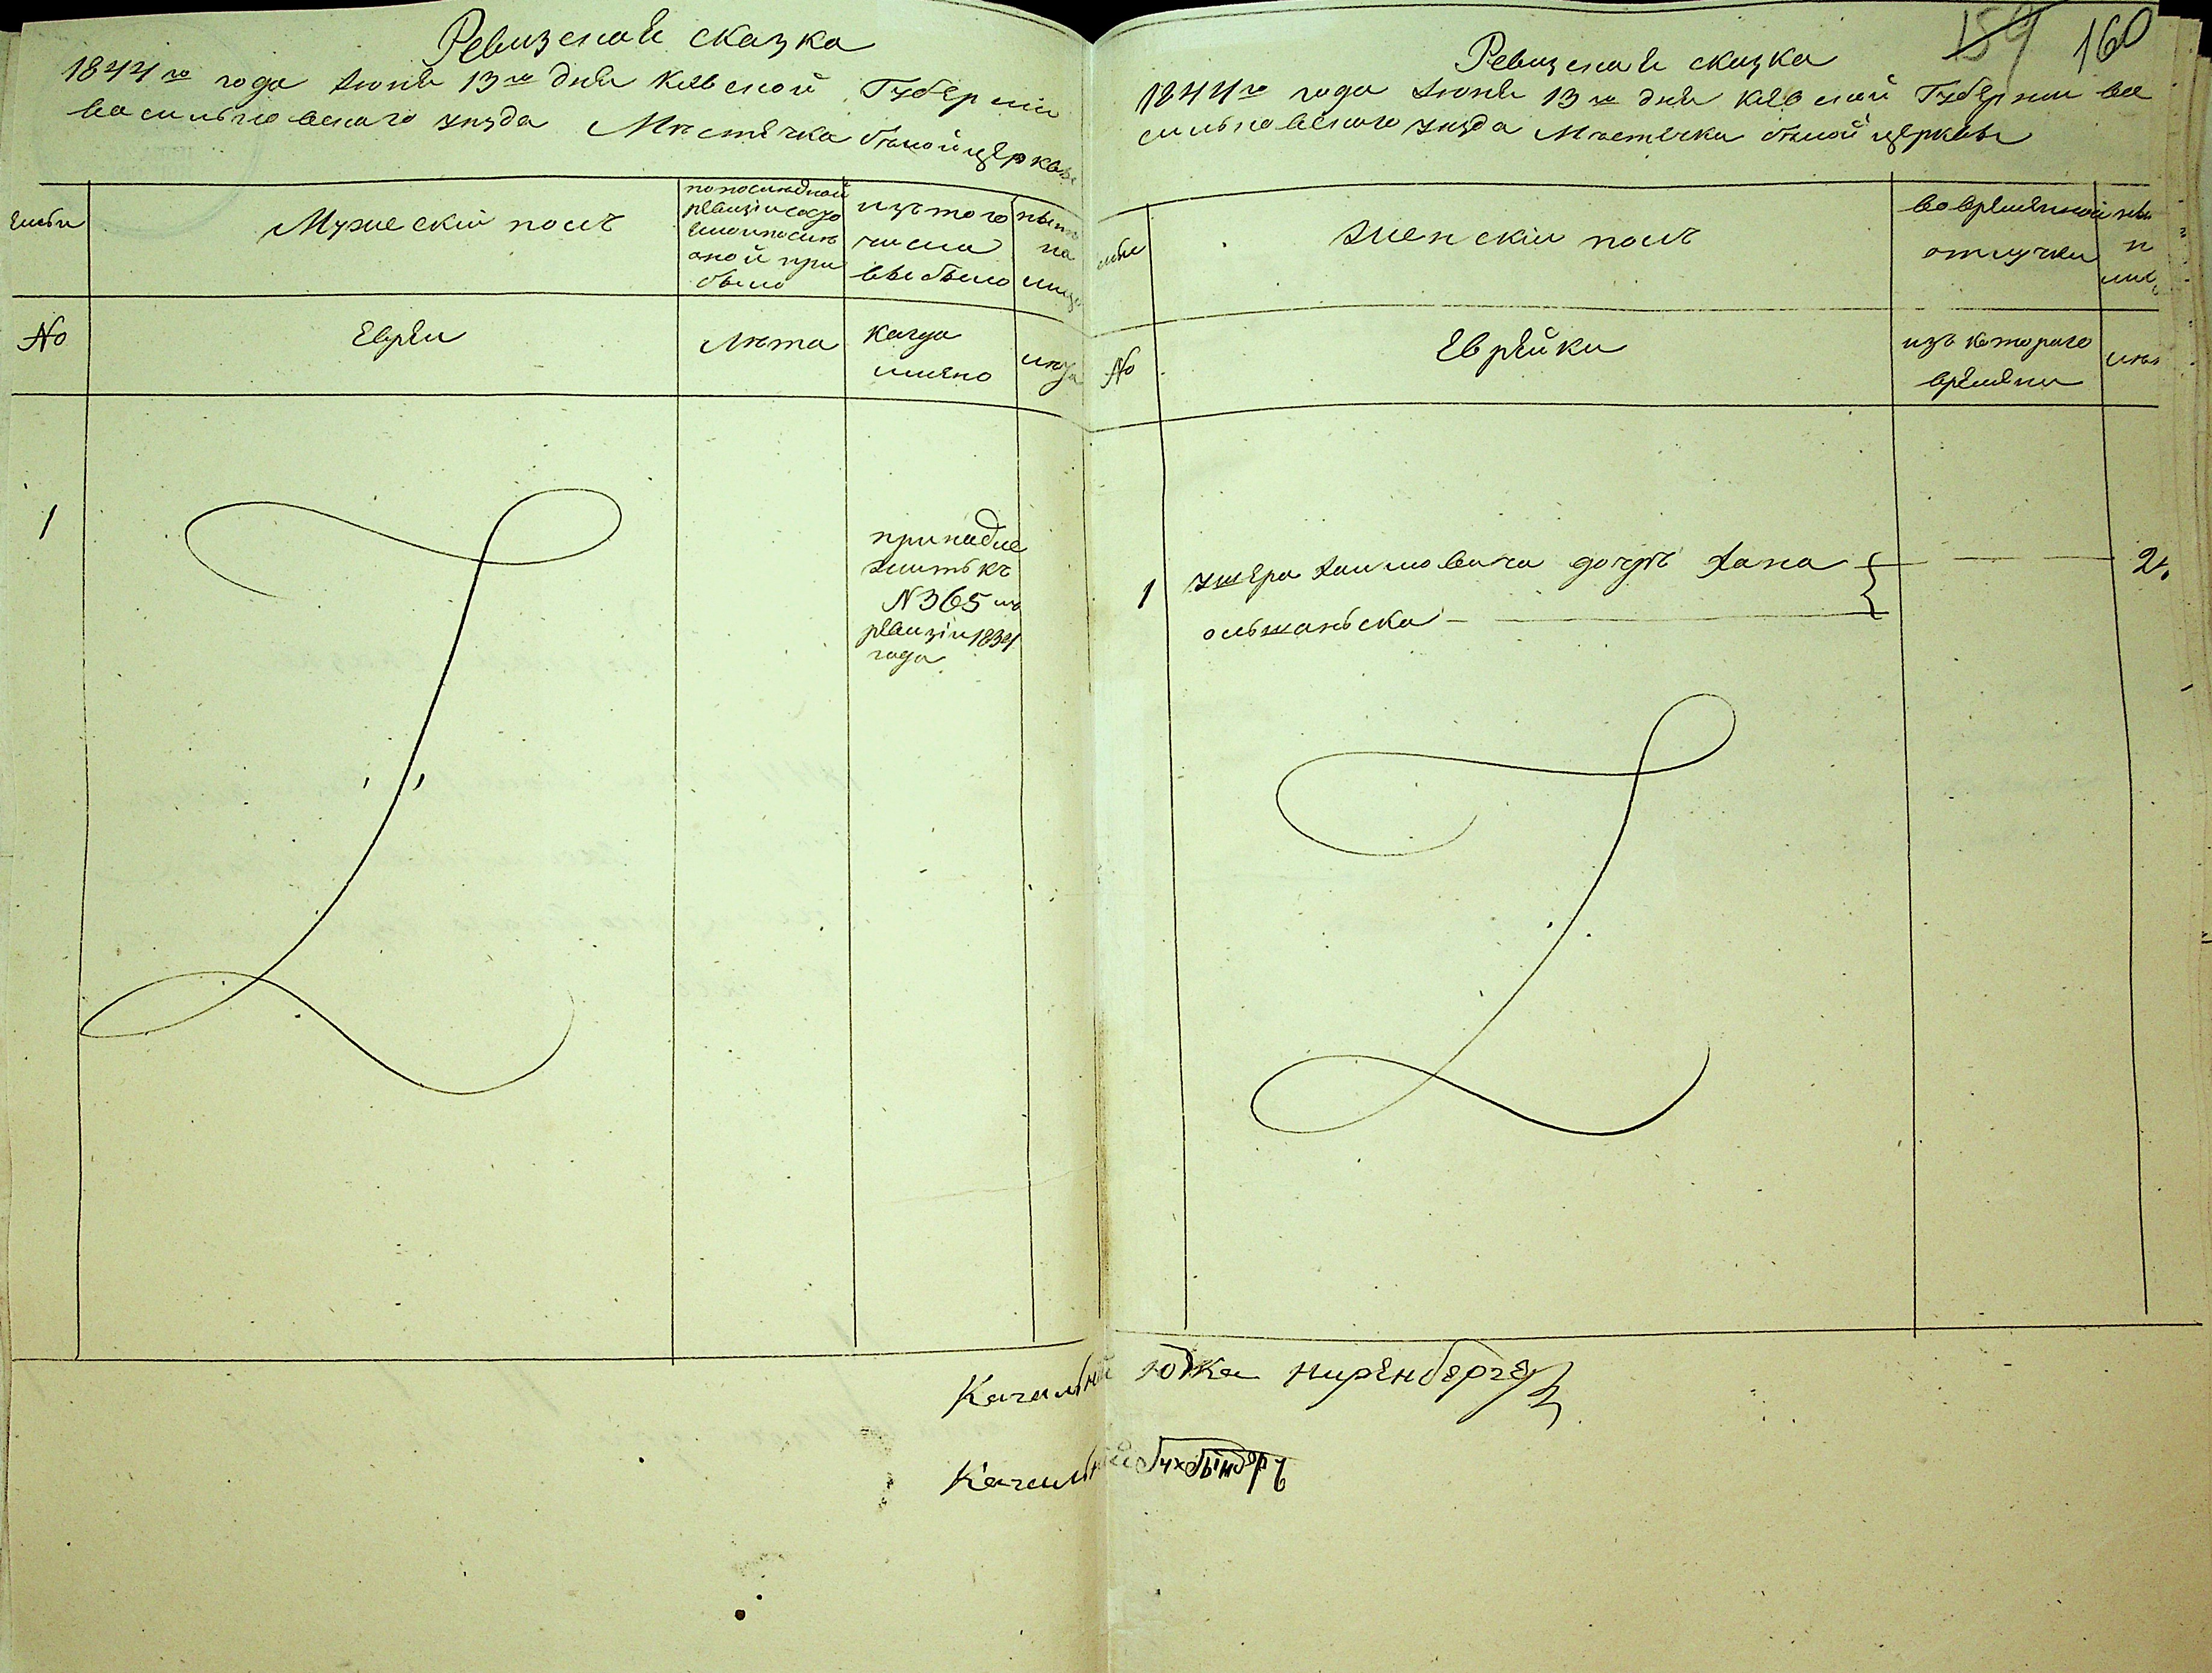 Ревизская сказка
1844го года Июня 13го дня Киевской Губерніи
васильковскаго уезда Мѣстечка белойцеркви
Мужескій полъ
по последней
ревизіи состо
яло и после
оной при
было
изъ того
числа
выбыло
ныне
на
лицо
№
Евреи
Лѣта
Когда
имяно
лѣта
1
принадле
жить къ
N 365 из
ревизіи 1834
года
159 160
Ревизская сказка
1844го года Июня 13го дня Киевской Губернии ва
сильковскаго уезда Мѣстечка белой церкви
женскій полъ
во временной
отлучки
№
Еврейки
изъ котораго
времяни
1 ушера Хаимовича дочерь Хана
ольшанска
Кагальный Юдка Ниренберге
Кагальный Бухбындеръ